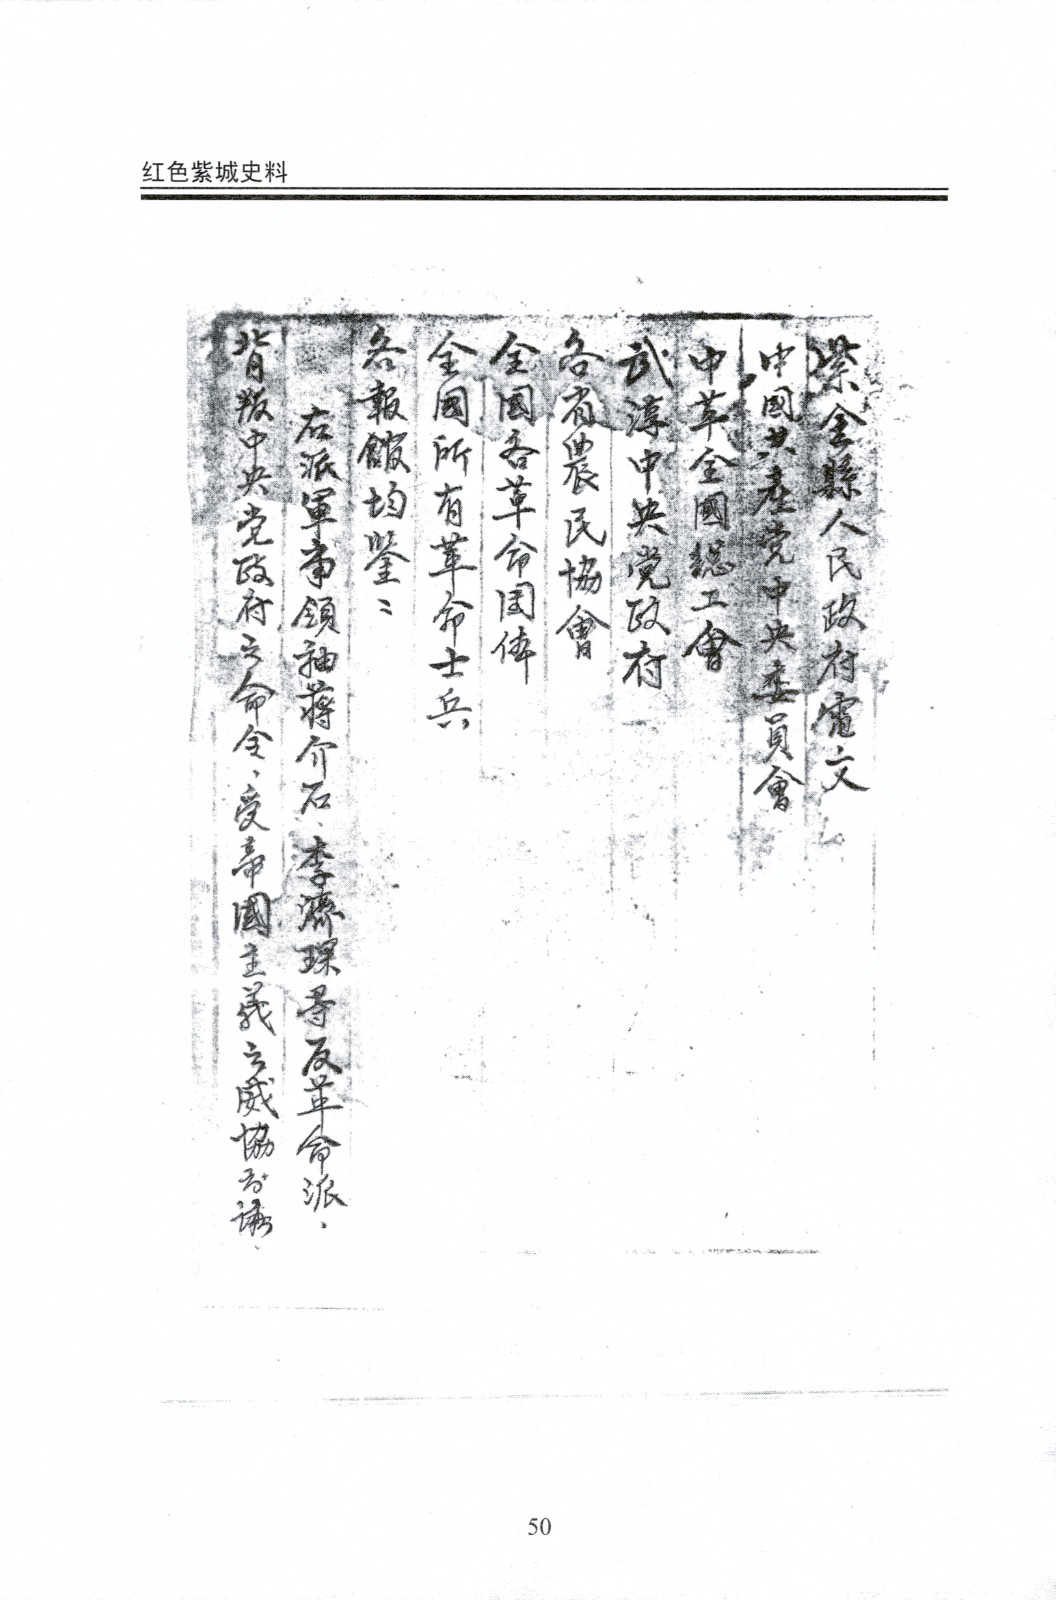 红色紫城史料
紫金縣人民政府電文
中國共產党中央委員會
中革全國總工會
武漢中央党政府
各省農民協會
全國各革命团体
全國所有革命士兵
各報館均鑒：
右派軍事領袖蔣介石、李濟琛等反革命派、
背叛中央党政府之命令、受帝國主義之威協
50